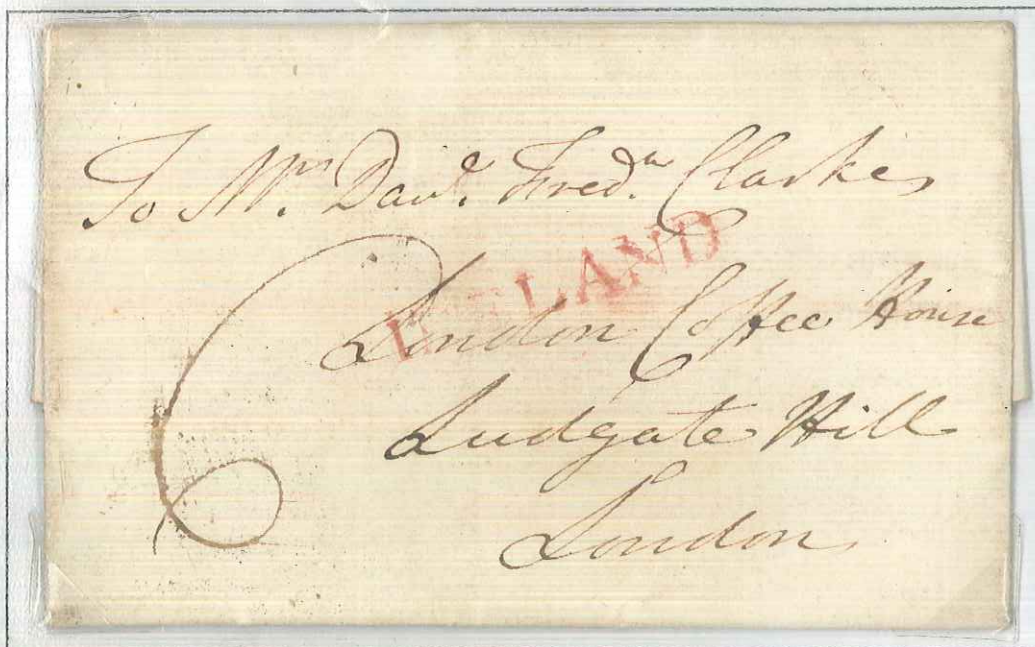 To Mr. Davd. Fredk. Clarke
IRELAND
London Coffee House
Ludgate Hill
London
6